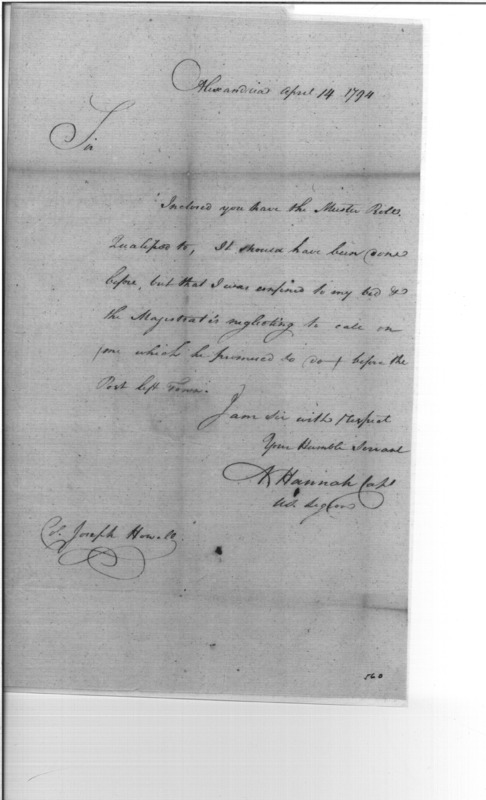 Alexandria April 14 1794
Sir
Inclosed you have the Muster Rolls
Qualified to, It should have been done
before, but that I was confined to my bed &
the Magistrate's neglecting to call on
me which he promised to do before the
Post left Town.
I am Sir with respect
Your Humble Servant
N Hannah Capt
US. Legion
Joseph Howell
560